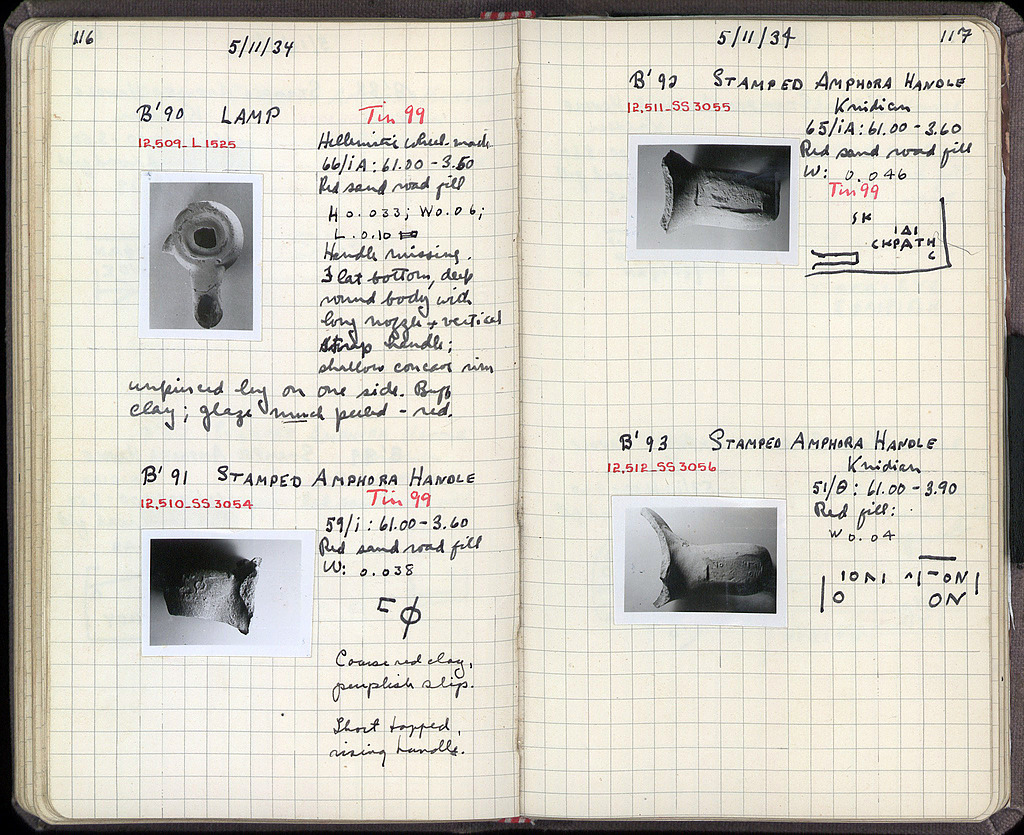 116
5/11/34
B'90 LAMP
Tin 99
12,509_L 1525
Hellenistic wheel-made
66/iA : 61.00 - 3.50
Red sand road fill
H 0.033; W 0.06;
L. 0.10
Handle missing.
Flat bottom, deep
round body with
long nozzle + vertical
strap handle;
shallow concave rim
unpierced lug on one side. Buff
clay; glaze much peeled - red.
B'91 STAMPED AMPHORA HANDLE
Tin 99
12,510_SS 3054
59/i : 61.00 - 3.60
Red sand road fill
W: 0.038
⊏ ϕ
Coarse red clay,
purplish slip.
Short topped,
rising handle.
5/11/34
117
B'92 STAMPED AMPHORA HANDLE
12,511_SS 3055
Knidian
65/iA : 61.00 - 3.60
Red sand road fill
W: 0.046
Tin 99
SK
ΙΔΙ
CKPATH
C
B'93 STAMPED AMPHORA HANDLE
12,512_SS 3056
Knidian
51/Θ : 61.00 - 3.90
Red fill:
W 0.04
ON
O ON